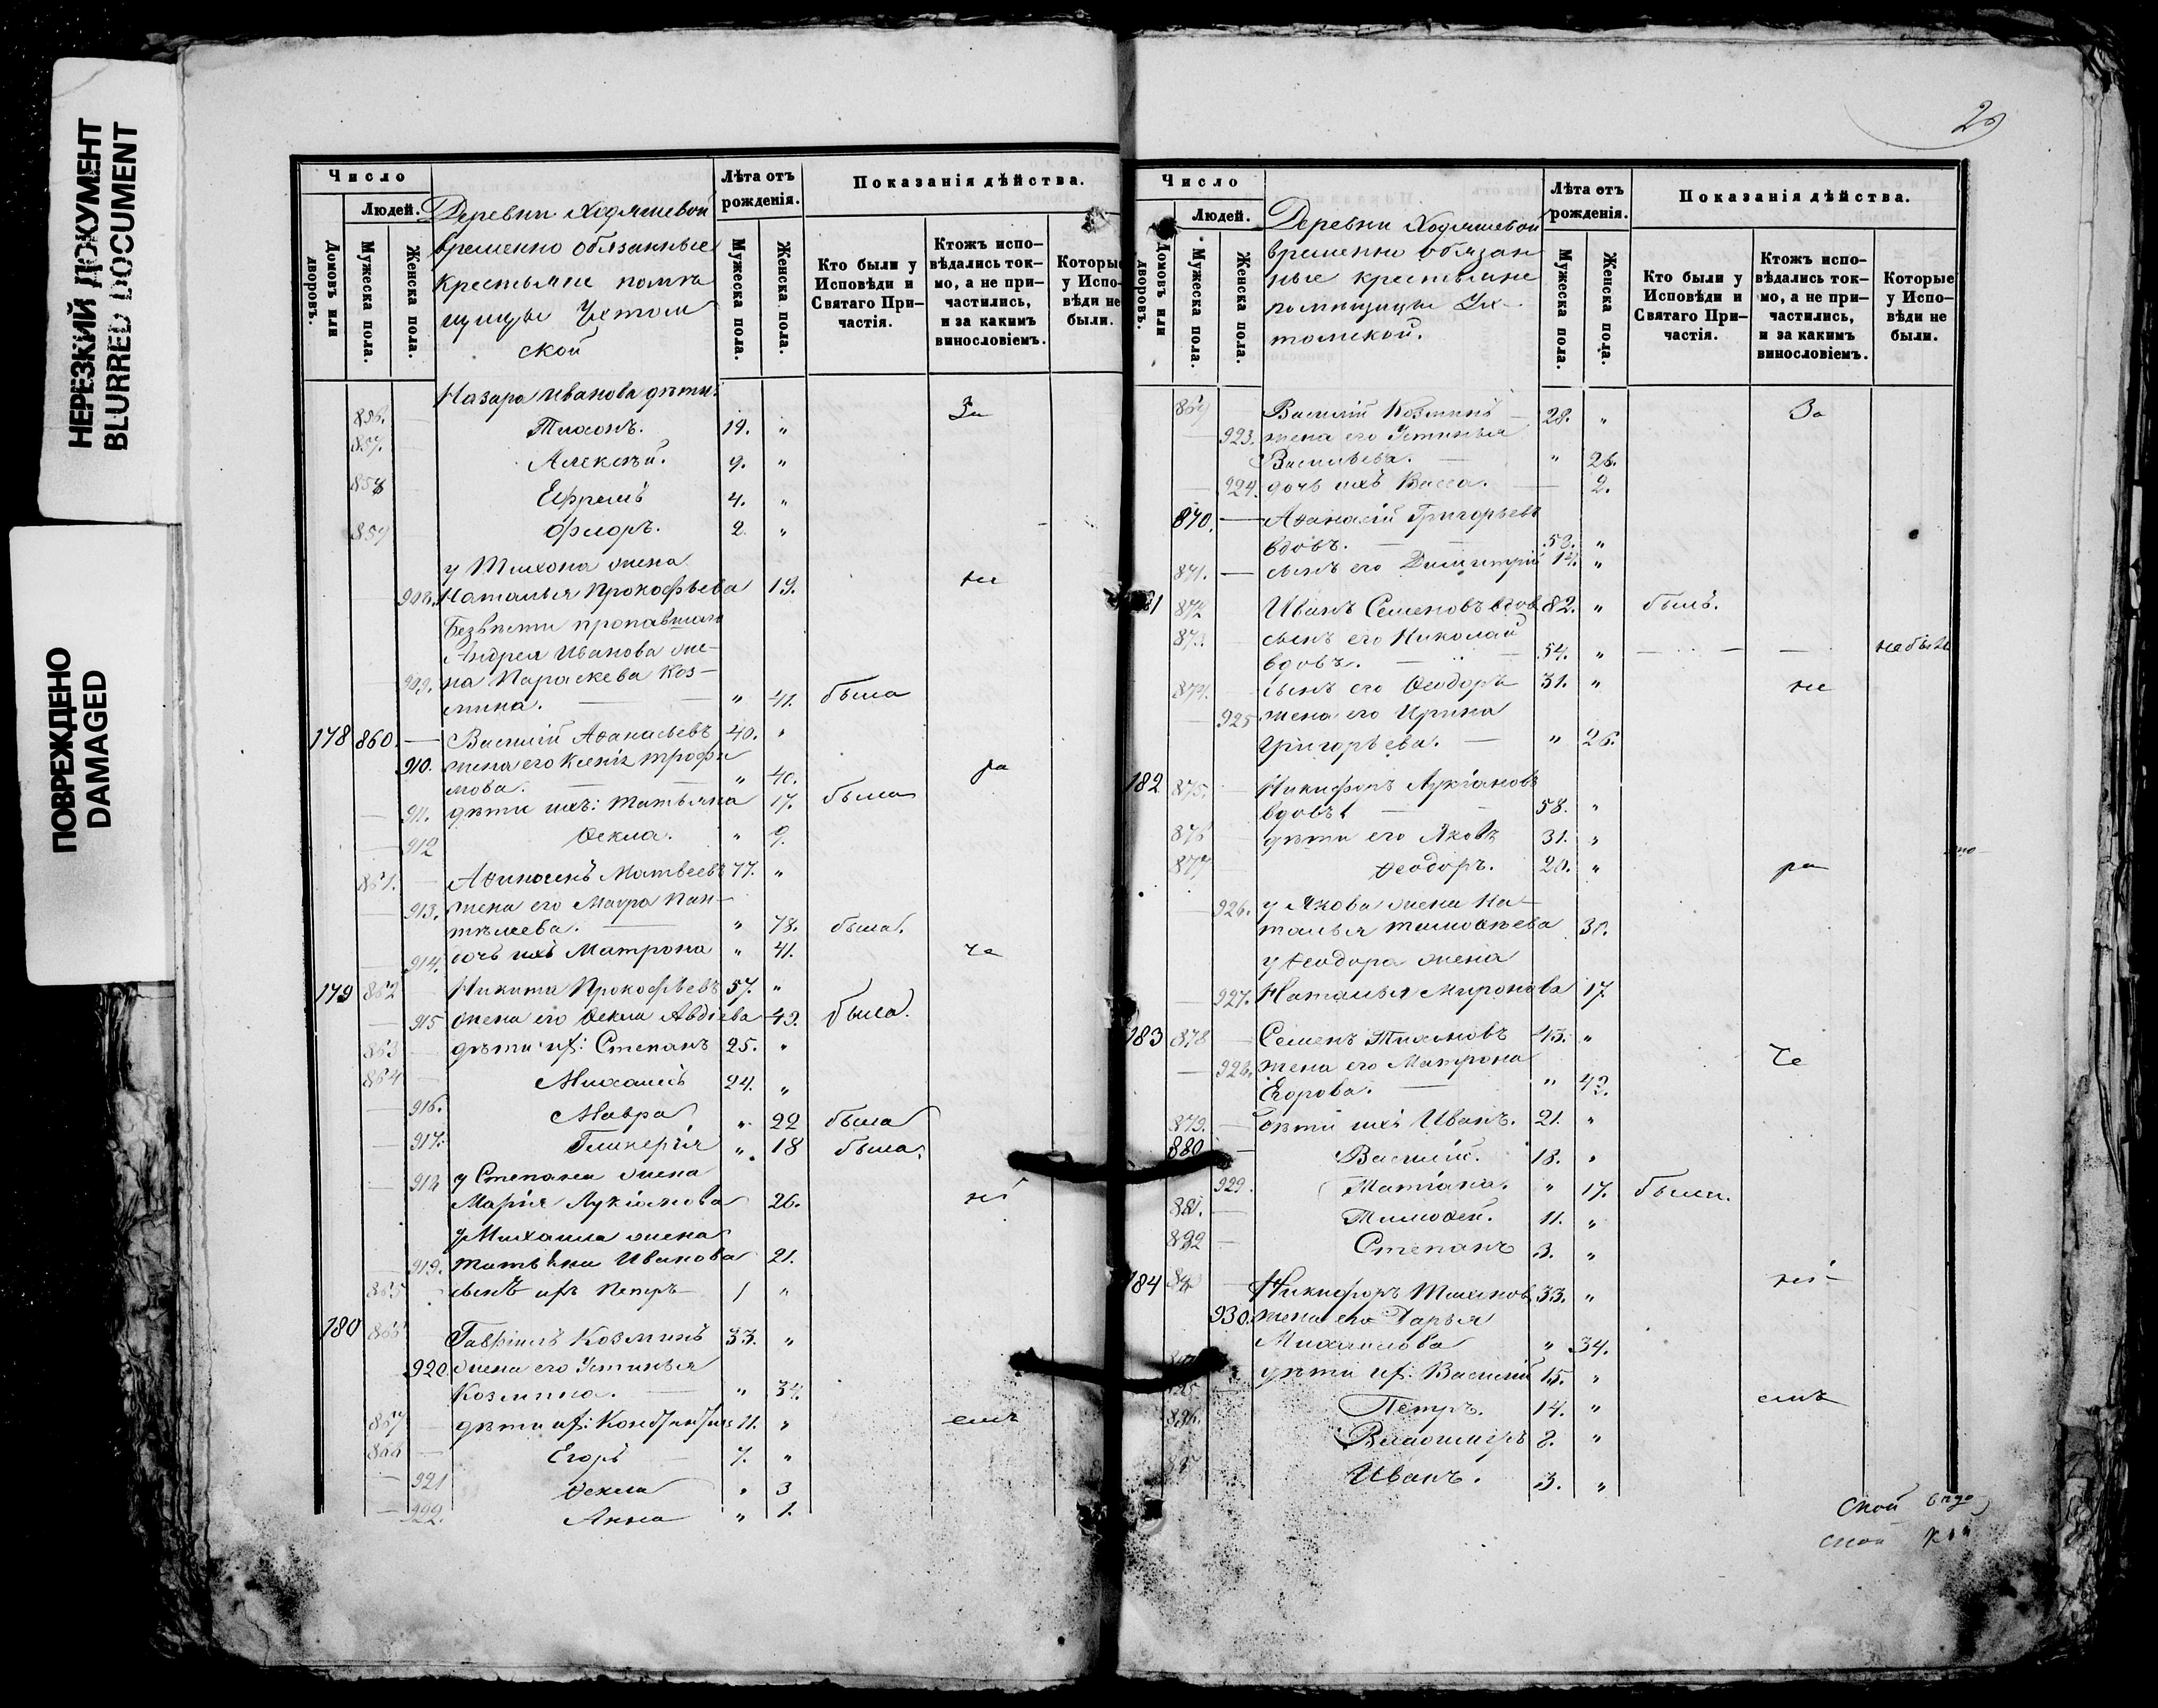 НЕРЕЗКИЙ ДОКУМЕНТ
BLURRED DOCUMENT
ПОВРЕЖДЕНО
DAMAGED
Число
Людей.
Домовъ или дворовъ.
Мужеска пола.
Женска пола.
Деревни Ходяшевой
временно обязанные
крестьяне помѣ
щицы Ухтом
ской
Лѣта отъ рожденія.
Мужеска пола.
Женска пола.
Показанія дѣйства.
Кто были у Исповѣди и Святаго Причастія.
Ктожъ исповѣдались токмо, а не причастились, и за какимъ винословіемъ.
Которые у Исповѣди не были.
Назара Иванова дѣти:
856. Тихонъ. 19. „ За
857. Алексѣй. 9. „
858 Ефремъ 4. „
859 Флоръ. 2. „
у Тихона жена
908. Наталья Прокофьева 19. не
Безвѣсти пропавшаго
Андрея Иванова же-
909. на Параскева Коз-
мина. „ 41. была
178 860. Василій Аѳанасьевъ 40. „
910. жена его Ксенія Трофи
мова. „ 40. ра
911. дѣти ихъ: Татьяна 17. была
912 Ѳекла. „ 9.
861. Аѳанасій Матвеевъ 77. „
913. жена его Мавра Пан-
телеева. „ 78. была.
914. дочь ихъ Матрона „ 41. че
179 862 Никита Прокофьевъ 57. „
915 жена его Ѳекла Авдіева 49. была.
863 дѣти их: Степанъ 25. „
864 Михаилъ 24. „
916. Мавра „ 22 была
917. Гликерія „ 18 была.
918 у Степана жена
Марія Лукіанова 26. ні
у Михаила жена
919. Татьяна Иванова 21.
865 сынъ ихъ Петръ 1 „
180 866 Гавріилъ Козминъ 33. „
920. жена его Устинья
Козмина. „ 34.
867 дѣти их: Константинъ 11. „ емъ
868 Егоръ 7. „
921 Ѳекла „ 3
922. Анна „ 1.
29
Число
Людей.
Домовъ или дворовъ.
Мужеска пола.
Женска пола.
Деревни Ходяшевой
временно обязан
ные крестьяне
помѣщицы Ух-
томской.
Лѣта отъ рожденія.
Мужеска пола.
Женска пола.
Показанія дѣйства.
Кто были у Исповѣди и Святаго Причастія.
Ктожъ исповѣдались токмо, а не причастились, и за какимъ винословіемъ.
Которые у Исповѣди не были.
869 Василій Козминъ 28. „ За
923. жена его Устинья
Васильева. „ 26.
924. дочь ихъ Васса. 2.
870. Аѳанасій Григорьевъ
вдовъ. 58. „
871. сынъ его Димитрій 14. „
181 872 Иванъ Семеновъ вдов 82. „ былъ.
873. сынъ его Николай
вдовъ. 54. „ не былъ
874. сынъ его Ѳеодоръ 31. „ не
925 жена его Ирина
Григорьева. „ 26.
182 875. Никифоръ Лукіановъ
вдовъ 58. „
876 дѣти его Яковъ 31. „
877 Ѳеодоръ. 20. „ ра
926. у Якова жена На-
талья Тимоѳеева 31.
у Ѳеодора жена
927. Наталья Миронова 17.
183 878 Семенъ Тихоновъ 43. „
928. жена его Матрона
Егорова. „ 43. Че
879. дѣти ихъ Иванъ. 21. „
880 Василій. 18. „
929. Татіана. „ 17. была.
881. Тимоѳей. 11. „
882 Степанъ 3. „
184 Никифоръ Тихонов 33. „ ні
930. жена его Дарья
Михаилова „ 34.
дѣти их: Василій 15. „
Петръ. 14. „ емъ
886. Владиміръ 8. „
887 Иванъ. 3. „